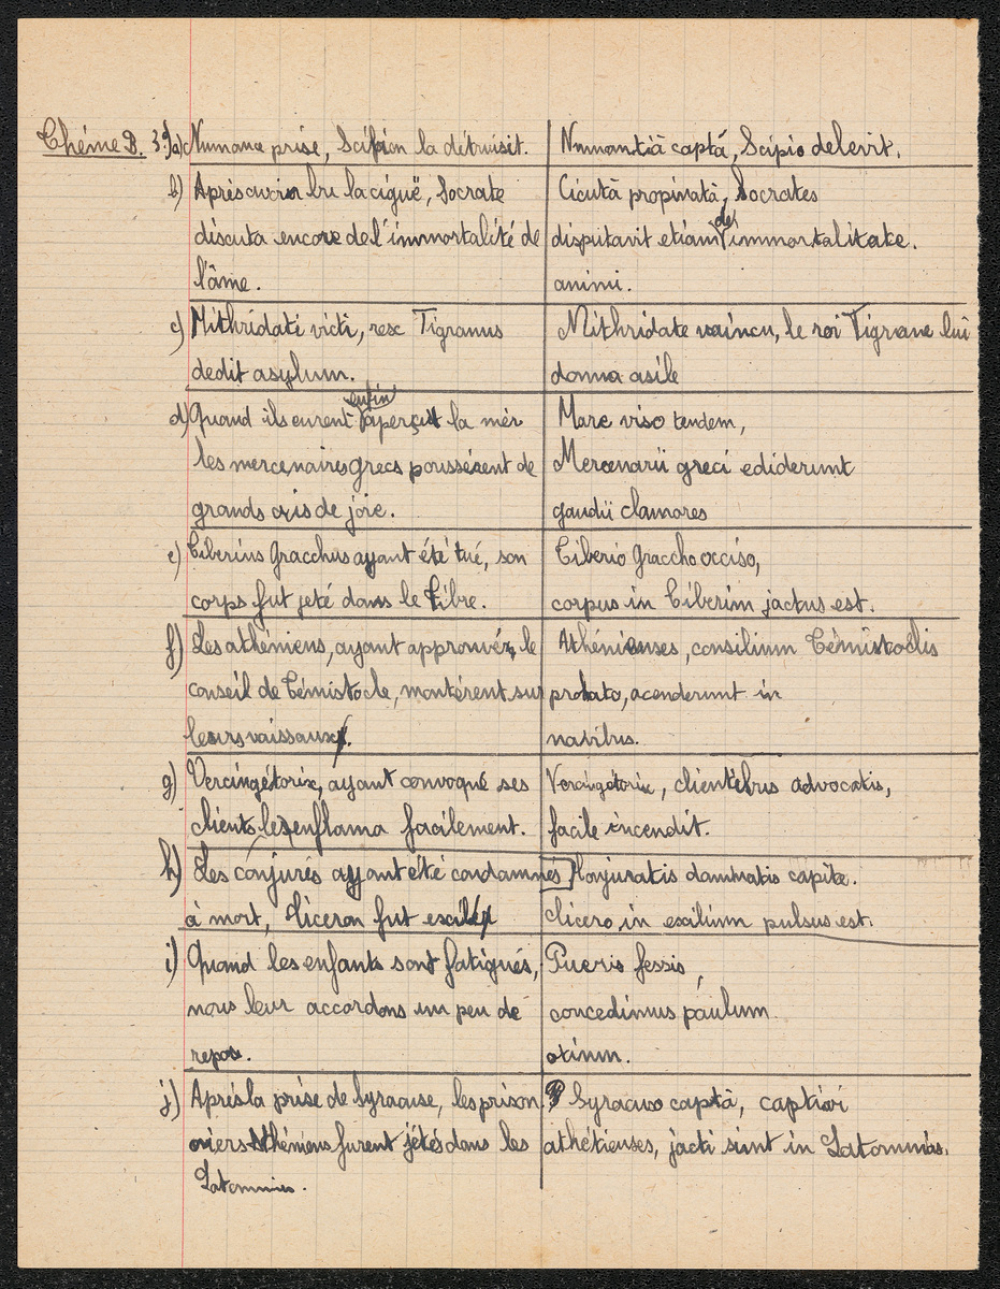 Thème B. 3°/a) Numance prise, Scipion la détruisit.
Numantiā captā, Scipio delevit.
b) Après avoir bu la ciguë, Socrate
discuta encore de l'immortalité de
l'âme.
Cicutā propinatā, Socrates
disputavit etiam de immortalitate.
animi.
c) Mithridati victi, rex Tigranus
dedit asylum.
Mithridate vaincu, le roi Tigrane lui
donna asile
d) Quand ils eurent enfin aperçu la mer
les mercenaires grecs poussèrent de
grands cris de joie.
Mare viso tendem,
Mercenarii greci ediderunt
gaudii clamores
e) Tiberius Gracchus ayant été tué, son
corps fut jeté dans le Tibre.
Tiberio Graccho occiso,
corpus in Tiberim jactus est.
f) Les athéniens, ayant approuvé le
conseil de Témistocle, montèrent sur
leurs vaissaux.
Athénienses, consilium Témistoclis
probato, acenderunt in
navibus.
g) Vercingétorix, ayant convoqué ses
clients les enflama facilement.
Vercingétorix, clientibus advocatis,
facile incendit.
h) Les conjurés ayant été condamnés
à mort, Ciceron fut exilé
Conjuratis damnatis capite.
Cicero in exilium pulsus est.
i) Quand les enfants sont fatigués,
nous leur accordons un peu de
repos.
Pueris fessis,
concedimus paulum
otium.
j) Après la prise de Syracuse, les prison
niers Athéniens furent jétés dans les
Latomies.
captā, captivi
jacti sunt in Latomnias.